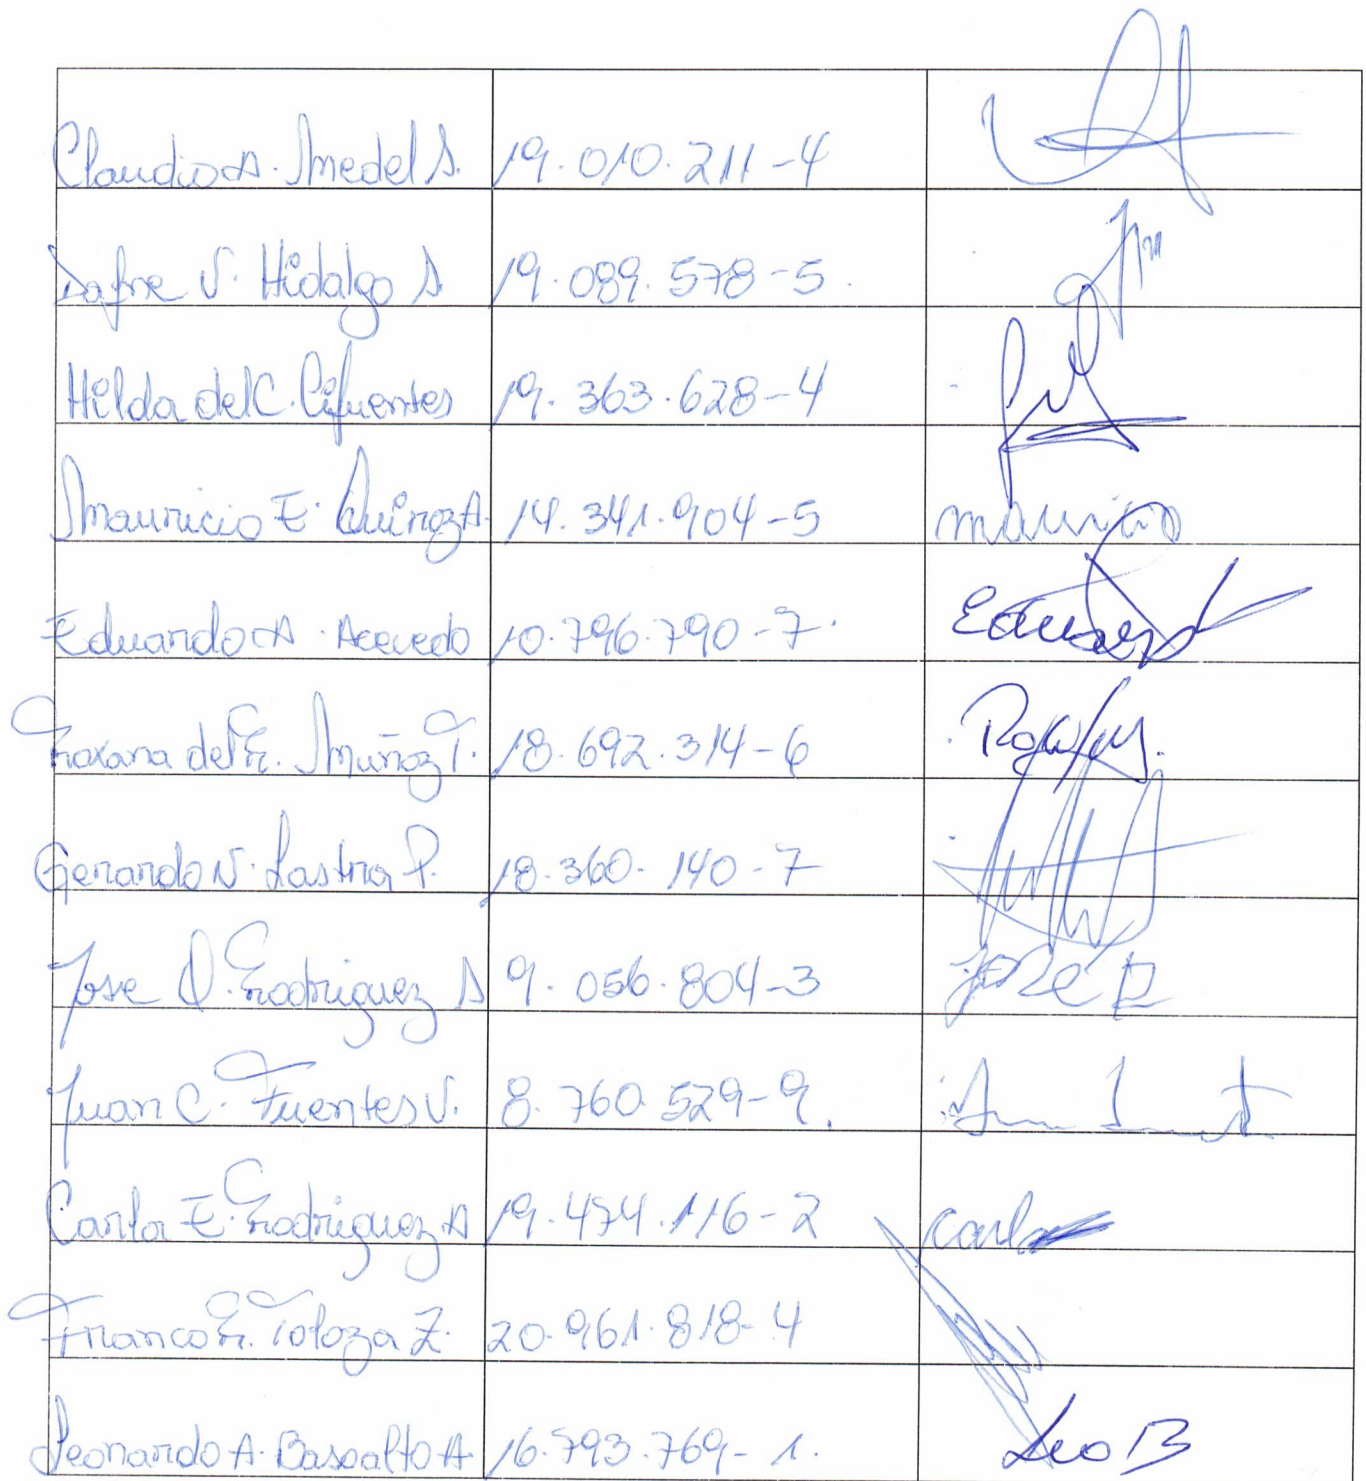 Claudio A. Medel S. 19.010.211-4
Dafne V. Hidalgo S 19.089.578-5.
Hilda del C. Cifuentes 19.363.628-4
Mauricio E. Quiroz A. 14.341.904-5 mauricio
Eduardo A. Acevedo 10.796.790-7. Eduardo
Roxana del R. Muñoz T. 18.692.314-6
Gerardo N. Lastra P. 18.360.140-7
Jose O. Rodriguez S 9.056.804-3 Jose R
Juan C. Fuentes V. 8.760.529-9.
Carla E. Rodriguez A 19.474.116-2 Carla
Franco R. Toloza Z. 20.961.818-4
Leonardo A. Basoalto A. 16.793.769-1. Leo B